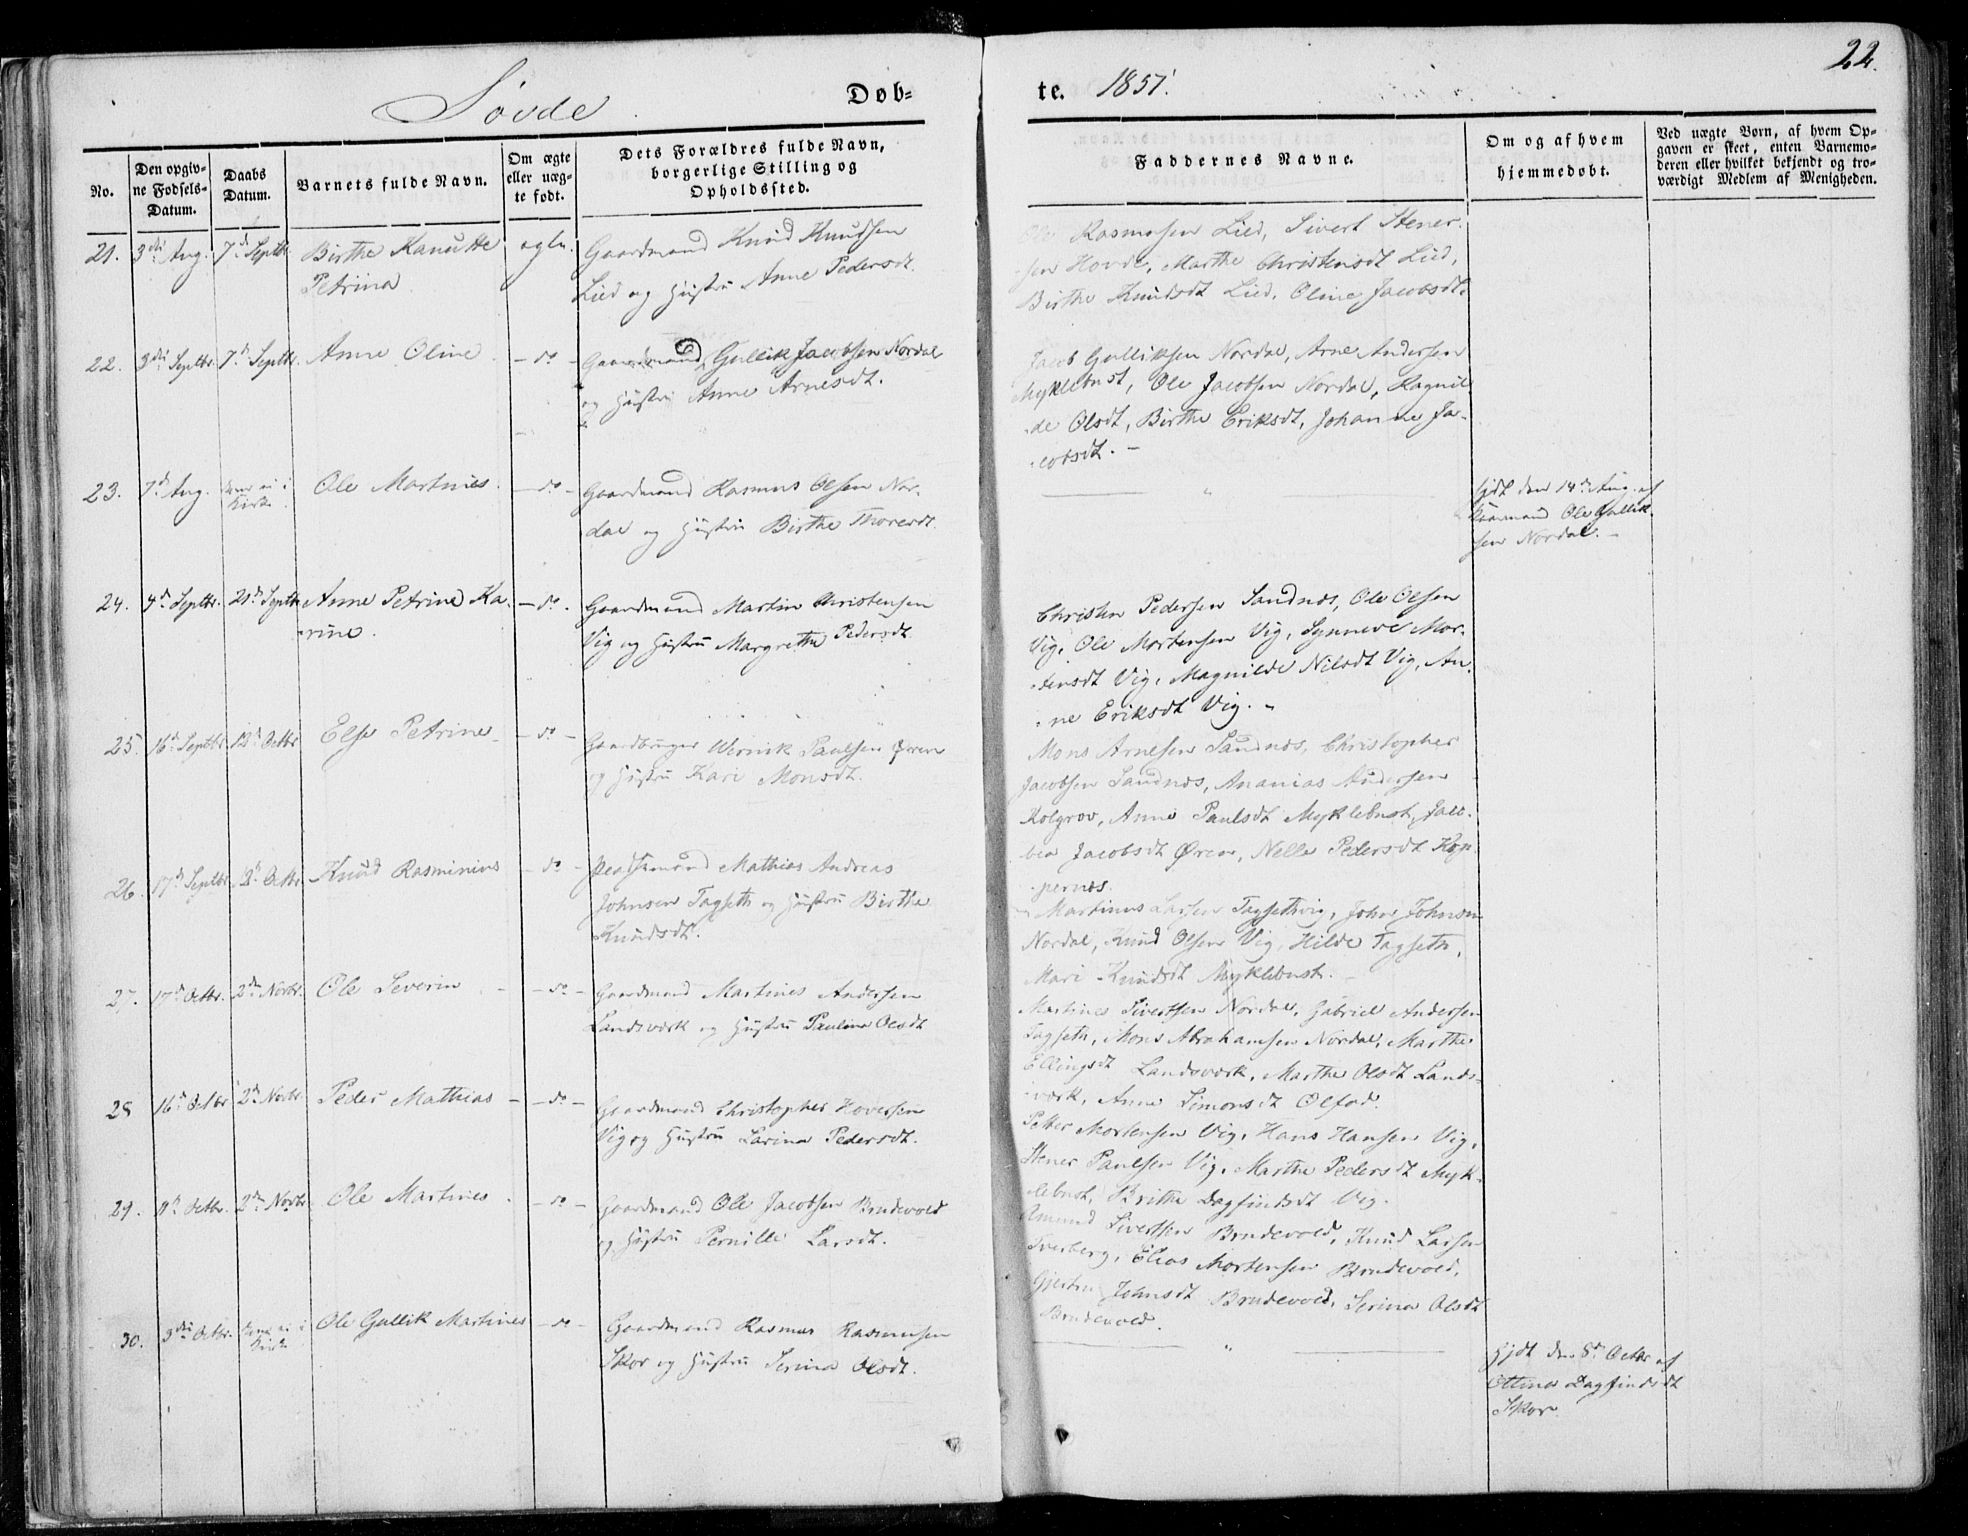 22.
Søvde
Døb-
te. 1851.
No.
Den opgiv-
ne Fødsels-
Datum.
Daabs
Datum.
Barnets fulde Navn.
Om ægte
eller uæg-
te født.
Dets Forældres fulde Navn,
borgerlige Stilling og
Opholdssted.
Faddernes Navne.
Om og af hvem
hjemmedøbt.
Ved uægte Børn, af hvem Op-
gaven er skeet, enten Barnemo-
deren eller hvilket bekjendt og tro-
værdigt Medlem af Menigheden.
21. 3die Aug. 7de Septbr. Birthe Kanutte
Petrina
ægte.
Gaardmand Knud Knudsen
Lied og Hustru Anne Pedersdt.
Rasmusen Lied, Sivert Stener-
sen Hovde, Marthe Christensdt Lied,
Birthe Knudsdt Lied, Oline Jacobsdt.
22. 3die Septbr. 7de Septbr. Anne Oline - do -
Gaardmand Gullik Jacobsen Nordal
og Hustru Anne Arnesdt.
Jacob Gulliksen Nordal, Arne Andersen
Myklebust, Ole Jacobsen Nordal, Ragnil-
de Olsdt, Birthe Eriksdt, Johanne Ja-
cobsdt. -
23. 7de Aug. ei i
Kirke
Ole Martinus - do -
Gaardmand Rasmus Olsen Nor-
dal og Hustru Birthe Thoresdt.
hjdt den 14de Aug. af
Gaarmand Ole Gullik-
sen Nordal. -
24. 4de Septbr. 21de Septbr. Anne Petrine Ka-
rine.
- do -
Gaardmand Martin Christensen
Vig og Hustru Margrethe Pedersdt.
Christen Pedersen Sandnæs, Ole Olsen
Vig, Ole Mortensen Vig, Synneve Mor-
tensdt Vig, Magnilde Nilsdt Vig, An-
ne Eriksdt Vig. -
25. 16de Septbr. 12de Octbr. Else Petrine - do -
Gaardbruger Wernik Paulsen Øren
og Hustru Kari Monsdt.
Mons Arnesen Sandnæs, Christopher
Jacobsen Sandnæs, Ananias Andersen
Kolgrov, Anne Paulsdt Myklebust, Jaco-
bea Jacobsdt Øren, Nelle Pedersdt Kop-
pernæs.
26. 17de Septbr. 12te Octbr. Knud Rasminius - do -
Pladsmand Mathias Andreas
Johnsen Tagseth og Hustru Birthe
Knudsdt.
Martinus Larsen Tagsethvig, John Johnsen
Nordal, Knud Olsen Vig, Hilde Tagseth,
Mari Knudsdt Myklebust.
27. 17de Octbr. 2den Novbr. Ole Severin - do -
Gaardmand Martines Andersen
Landsværk og Hustru Pauline Olsdt
Martines Sivertsen Nordal, Gabriel Andersen
Tagseth, Mons Abrahamsen Nordal, Marthe
Ellingsdt Landsværk, Marthe Olsdt Lands-
værk, Anne Simonsdt
28 16de Octbr 2den Novbr. Peder Mathias - do -
Gaardmand Christopher Hoversen
Vig og Hustru Larina Pedersdt.
Petter Mortensen Vig, Hans Hansen Vig,
Stener Paulsen Vig, Marthe Pedersdt Myk-
lebust, Brithe Dagfindsdt Vig.
29. Octbr. 2den Novbr. Ole Martines - do -
Gaardmand Ole Jacobsen Brudevold
og Hustru Pernille Larsdt.
Amund Sivertsen Brudevold, Knud Larsen
Tverberg, Elias Mortensen Brudevold,
Gjertru Johnsdt Brudevold, Serina Olsdt
Brudevold.
30. 3die Octbr. ei i
Kirke
Ole Gullik Martines - do -
Gaardmand Rasmus Rasmusen
Skor og Hustru Serina Olsdt.
Hjdt den 8de Octbr af
Ottina Dagfindsdt
Skor